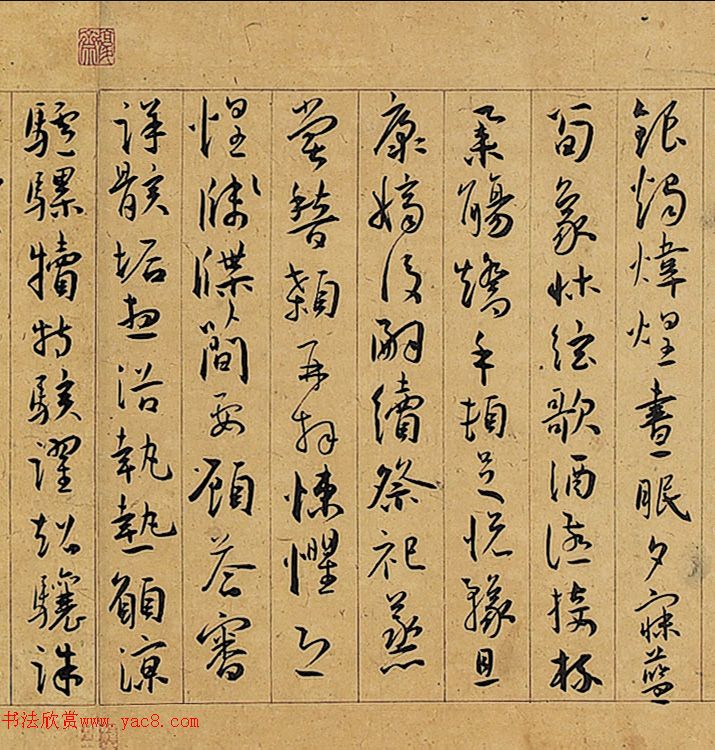 銀燭煒煌晝眠夕寐藍
筍象牀絃歌酒讌接杯
舉觴矯手頓足悅豫且
康嫡後嗣續祭祀蒸
嘗稽顙再拜悚懼恐
惶牋牒簡要顧答審
詳骸垢想浴執熱願涼
驢騾犢特駭躍超驤誅
书法欣赏www.yac8.com